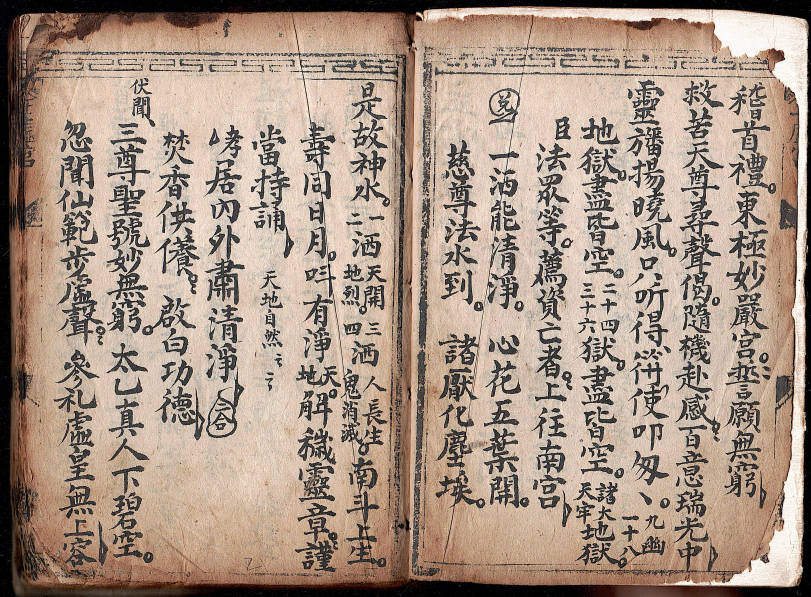 稽首禮。東極妙嚴宮。誓願無窮
救苦天尊尋聲偈。隨機赴感百意瑞光中
靈旛揚曉風。只听得符使叩匆、。九幽一十八
地獄。盡皆空。二十四三十六獄。盡皆空。諸大地獄。天牢
臣法眾等。薦資亡者。上往南宮
兌 一洒能清淨。心花五葉開。
慈尊法水到。諸厭化塵埃。
是故神水。一洒天開二洒地烈。三洒人長生四洒鬼消滅。南斗上生。
壽同日月。吽有淨天地解穢靈章。謹
當持誦 天地自然
峙居內外肅清淨 合
焚香供養。啟白功德
伏聞、三尊聖號妙無窮。太乙真人下碧空。
忽聞仙範步虛聲。參礼虛皇無上容